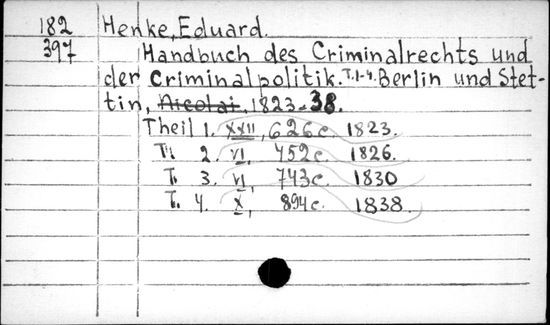 182 Henke, Eduard.
397 Handbuch des Criminalrechts und
der Criminalpolitik. T.1-4. Berlin und Stet-
tin, Nicolai, 1823-38.
Theil 1. XXII, 626c. 1823.
T. 2. VI, 752c. 1826.
T. 3. VI, 743c. 1830
T. 4. X, 894c. 1838.